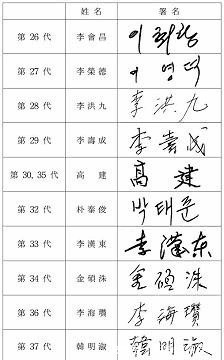 姓 名 署 名
第 26 代 李會昌 이회창
第 27 代 李榮德 이영덕
第 28 代 李洪九 李洪九
第 29 代 李壽成 李壽成
第 30, 35 代 高 建 高建
第 32 代 朴泰俊 박태준
第 33 代 李漢東 李漢东
第 34 代 金碩洙 金碩洙
第 36 代 李海瓚 李海瓚
第 37 代 韓明淑 韓明淑